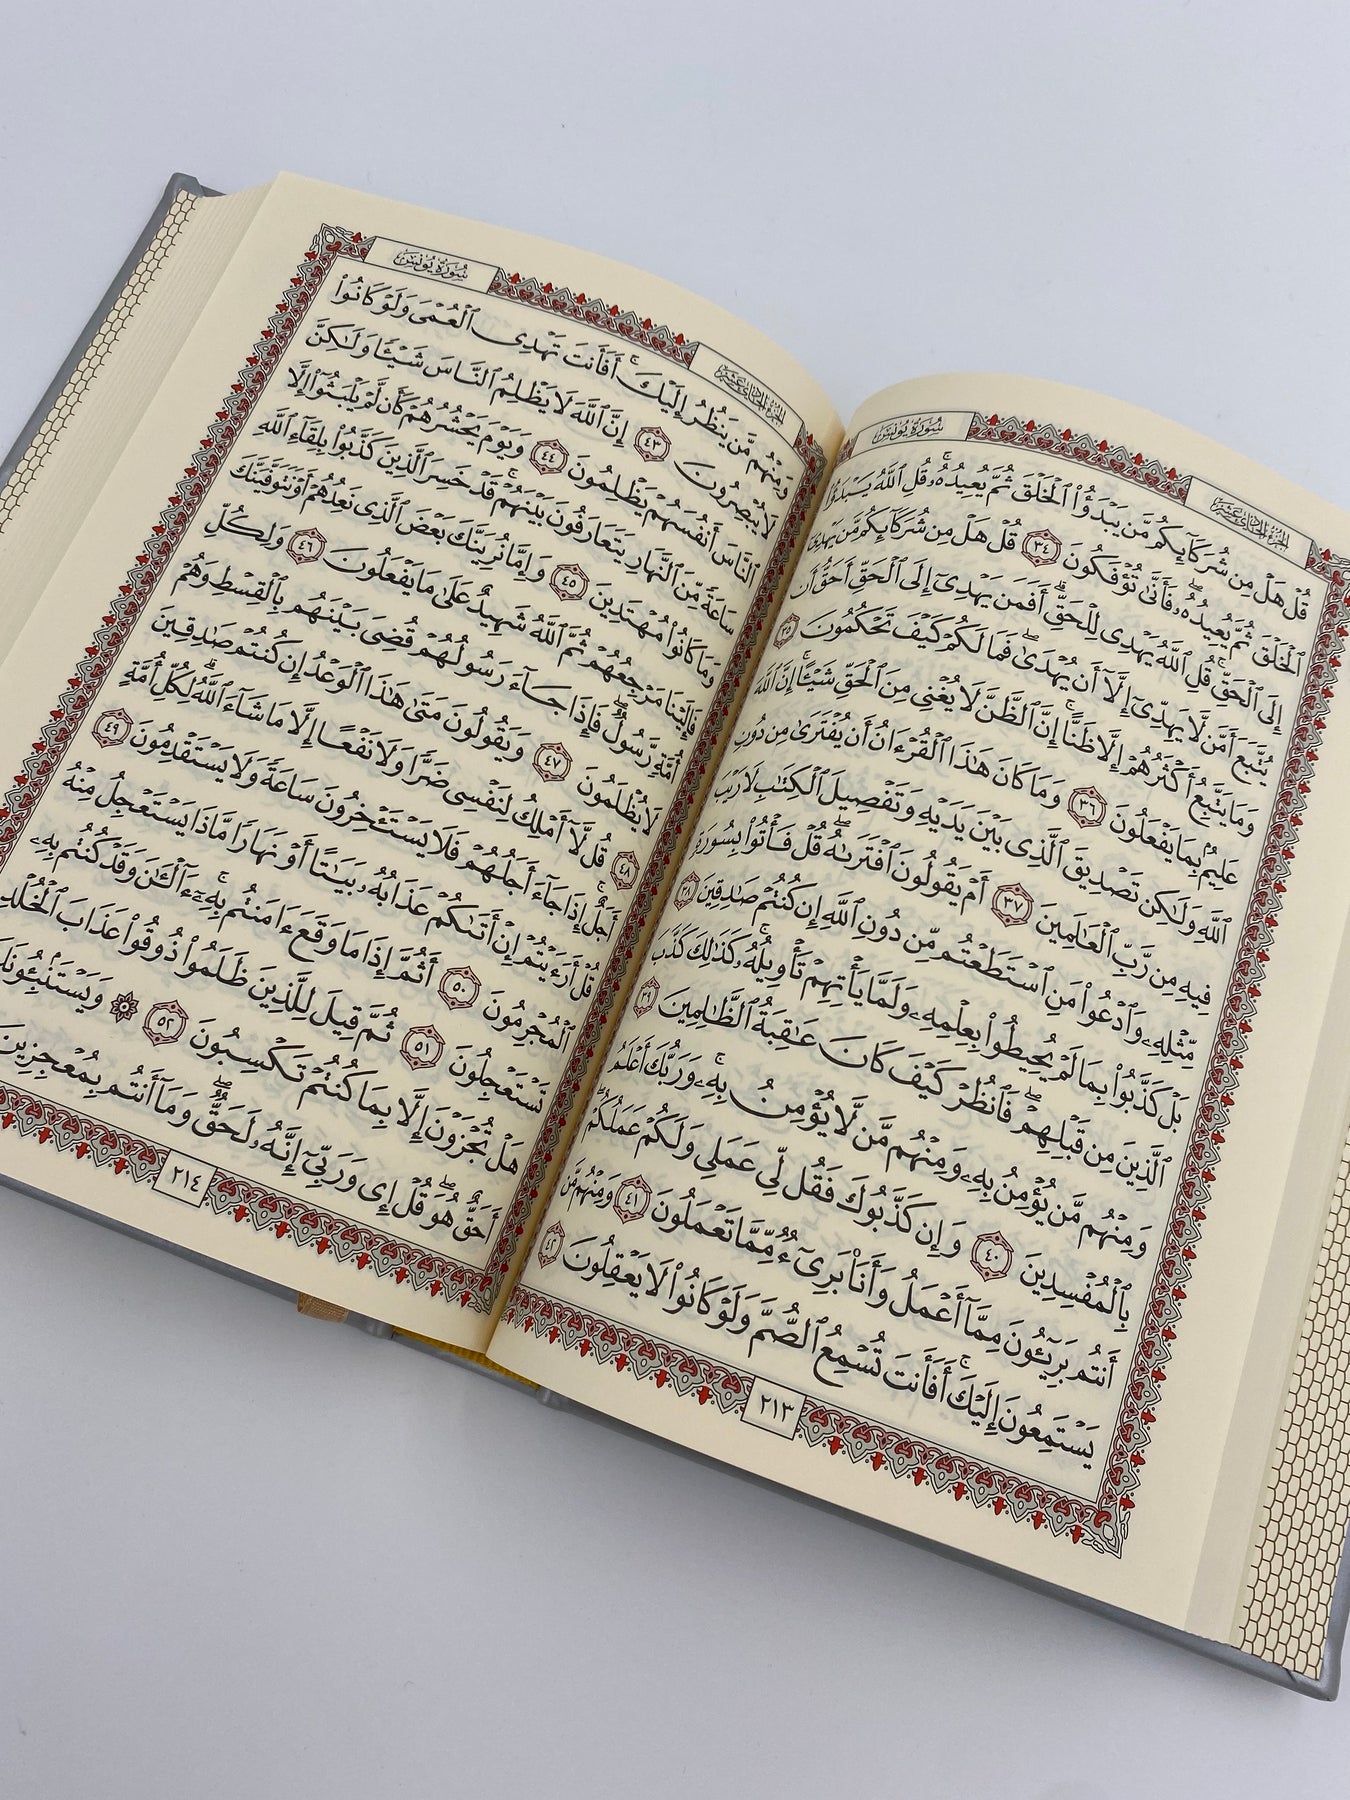 سُورَةُ يُونُسَ
الجُزْءُ الحَادِي عَشَرَ
قُلْ هَلْ مِن شُرَكَآئِكُم مَّن يَبْدَؤُا۟ ٱلْخَلْقَ ثُمَّ يُعِيدُهُۥ ۚ قُلِ ٱللَّهُ يَبْدَؤُا۟
ٱلْخَلْقَ ثُمَّ يُعِيدُهُۥ ۖ فَأَنَّىٰ تُؤْفَكُونَ ٣٤ قُلْ هَلْ مِن شُرَكَآئِكُم مَّن يَهْدِىٓ
إِلَى ٱلْحَقِّ ۚ قُلِ ٱللَّهُ يَهْدِى لِلْحَقِّ ۗ أَفَمَن يَهْدِىٓ إِلَى ٱلْحَقِّ أَحَقُّ أَن
يُتَّبَعَ أَمَّن لَّا يَهِدِّىٓ إِلَّآ أَن يُهْدَىٰ ۖ فَمَا لَكُمْ كَيْفَ تَحْكُمُونَ ٣٥
وَمَا يَتَّبِعُ أَكْثَرُهُمْ إِلَّا ظَنًّا ۚ إِنَّ ٱلظَّنَّ لَا يُغْنِى مِنَ ٱلْحَقِّ شَيْـًٔا ۚ إِنَّ ٱللَّهَ
عَلِيمٌۢ بِمَا يَفْعَلُونَ ٣٦ وَمَا كَانَ هَٰذَا ٱلْقُرْءَانُ أَن يُفْتَرَىٰ مِن دُونِ
ٱللَّهِ وَلَٰكِن تَصْدِيقَ ٱلَّذِى بَيْنَ يَدَيْهِ وَتَفْصِيلَ ٱلْكِتَٰبِ لَا رَيْبَ
فِيهِ مِن رَّبِّ ٱلْعَٰلَمِينَ ٣٧ أَمْ يَقُولُونَ ٱفْتَرَىٰهُ ۖ قُلْ فَأْتُوا۟ بِسُورَةٍ
مِّثْلِهِۦ وَٱدْعُوا۟ مَنِ ٱسْتَطَعْتُم مِّن دُونِ ٱللَّهِ إِن كُنتُمْ صَٰدِقِينَ ٣٨
بَلْ كَذَّبُوا۟ بِمَا لَمْ يُحِيطُوا۟ بِعِلْمِهِۦ وَلَمَّا يَأْتِهِمْ تَأْوِيلُهُۥ ۚ كَذَٰلِكَ كَذَّبَ
ٱلَّذِينَ مِن قَبْلِهِمْ ۖ فَٱنظُرْ كَيْفَ كَانَ عَٰقِبَةُ ٱلظَّٰلِمِينَ ٣٩
وَمِنْهُم مَّن يُؤْمِنُ بِهِۦ وَمِنْهُم مَّن لَّا يُؤْمِنُ بِهِۦ ۚ وَرَبُّكَ أَعْلَمُ
بِٱلْمُفْسِدِينَ ٤٠ وَإِن كَذَّبُوكَ فَقُل لِّى عَمَلِى وَلَكُمْ عَمَلُكُمْ ۖ
أَنتُم بَرِيٓـُٔونَ مِمَّآ أَعْمَلُ وَأَنَا۠ بَرِىٓءٌ مِّمَّا تَعْمَلُونَ ٤١ وَمِنْهُم مَّن
يَسْتَمِعُونَ إِلَيْكَ ۚ أَفَأَنتَ تُسْمِعُ ٱلصُّمَّ وَلَوْ كَانُوا۟ لَا يَعْقِلُونَ ٤٢
٢١٣
سُورَةُ يُونُسَ
الجُزْءُ الحَادِي عَشَرَ
وَمِنْهُم مَّن يَنظُرُ إِلَيْكَ ۚ أَفَأَنتَ تَهْدِى ٱلْعُمْىَ وَلَوْ كَانُوا۟
لَا يُبْصِرُونَ ٤٣ إِنَّ ٱللَّهَ لَا يَظْلِمُ ٱلنَّاسَ شَيْـًٔا وَلَٰكِنَّ
ٱلنَّاسَ أَنفُسَهُمْ يَظْلِمُونَ ٤٤ وَيَوْمَ يَحْشُرُهُمْ كَأَن لَّمْ يَلْبَثُوٓا۟ إِلَّا
سَاعَةً مِّنَ ٱلنَّهَارِ يَتَعَارَفُونَ بَيْنَهُمْ ۚ قَدْ خَسِرَ ٱلَّذِينَ كَذَّبُوا۟ بِلِقَآءِ ٱللَّهِ
وَمَا كَانُوا۟ مُهْتَدِينَ ٤٥ وَإِمَّا نُرِيَنَّكَ بَعْضَ ٱلَّذِى نَعِدُهُمْ أَوْ نَتَوَفَّيَنَّكَ
فَإِلَيْنَا مَرْجِعُهُمْ ثُمَّ ٱللَّهُ شَهِيدٌ عَلَىٰ مَا يَفْعَلُونَ ٤٦ وَلِكُلِّ
أُمَّةٍ رَّسُولٌ ۖ فَإِذَا جَآءَ رَسُولُهُمْ قُضِىَ بَيْنَهُم بِٱلْقِسْطِ وَهُمْ
لَا يُظْلَمُونَ ٤٧ وَيَقُولُونَ مَتَىٰ هَٰذَا ٱلْوَعْدُ إِن كُنتُمْ صَٰدِقِينَ
٤٨ قُل لَّآ أَمْلِكُ لِنَفْسِى ضَرًّا وَلَا نَفْعًا إِلَّا مَا شَآءَ ٱللَّهُ ۗ لِكُلِّ أُمَّةٍ
أَجَلٌ ۚ إِذَا جَآءَ أَجَلُهُمْ فَلَا يَسْتَـْٔخِرُونَ سَاعَةً وَلَا يَسْتَقْدِمُونَ ٤٩
قُلْ أَرَءَيْتُمْ إِنْ أَتَىٰكُمْ عَذَابُهُۥ بَيَٰتًا أَوْ نَهَارًا مَّاذَا يَسْتَعْجِلُ مِنْهُ
ٱلْمُجْرِمُونَ ٥٠ أَثُمَّ إِذَا مَا وَقَعَ ءَامَنتُم بِهِۦٓ ۚ ءَآلْـَٰٔنَ وَقَدْ كُنتُم بِهِۦ
تَسْتَعْجِلُونَ ٥١ ثُمَّ قِيلَ لِلَّذِينَ ظَلَمُوا۟ ذُوقُوا۟ عَذَابَ ٱلْخُلْدِ
هَلْ تُجْزَوْنَ إِلَّا بِمَا كُنتُمْ تَكْسِبُونَ ٥٢ ۞ وَيَسْتَنۢبِـُٔونَكَ
أَحَقٌّ هُوَ ۖ قُلْ إِى وَرَبِّىٓ إِنَّهُۥ لَحَقٌّ ۖ وَمَآ أَنتُم بِمُعْجِزِينَ
٢١٤